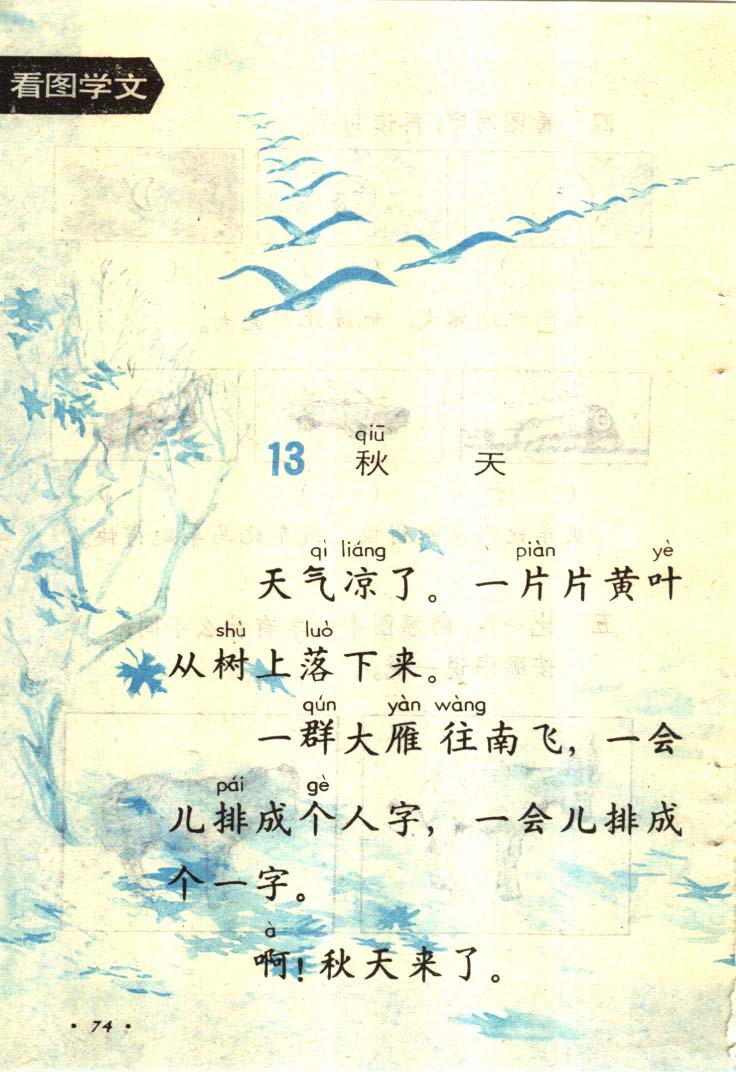 看图学文
qiū
13 秋 天
qì liáng piàn yè
天气凉了。 一片片黄叶
shù luò
从树上落下来。
qún yàn wàng
一群大雁 往南飞, 一会
pái gè
儿排成个人字, 一会儿排成
个一字。
à
啊! 秋天来了。
• 74 •